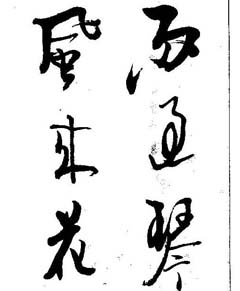 雨過琴
風來花